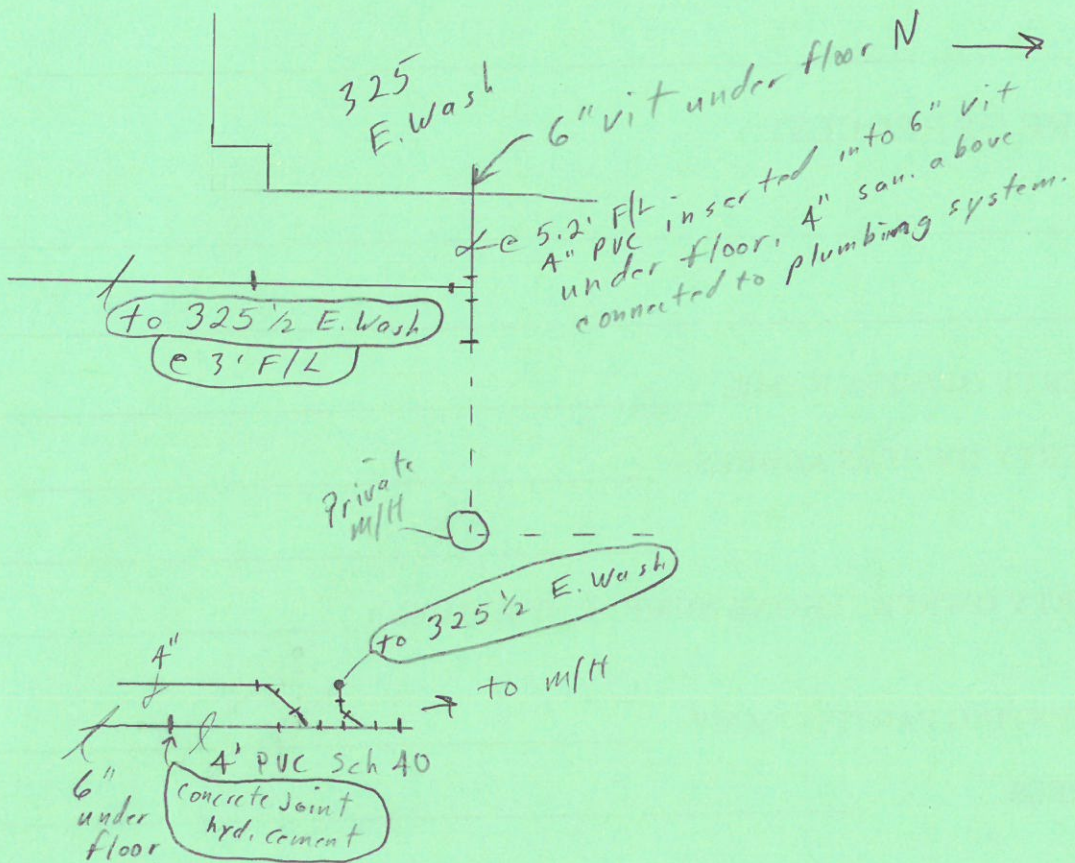 325
E. Wash
6" vit under floor
N
@ 5.2' F/L
4" PVC inserted into 6" vit
under floor. 4" san. above
connected to plumbing system.
to 325 ½ E. Wash
@ 3' F/L
Private
M/H
to 325 ½ E. Wash
4"
to M/H
4' PVC Sch 40
6"
under
floor
Concrete Joint
hyd. cement